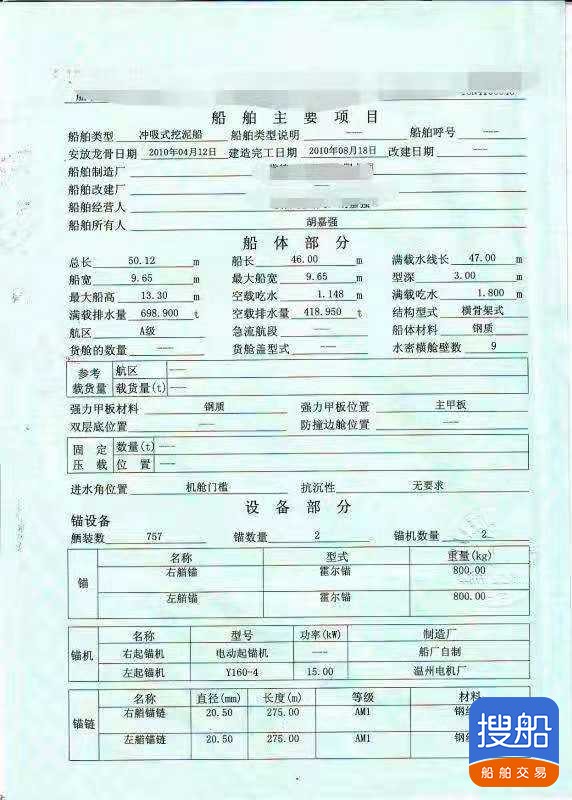 船舶主要项目
船舶类型 冲吸式挖泥船 船舶类型说明 --- 船舶呼号 ---
安放龙骨日期 2010年04月12日 建造完工日期 2010年08月18日 改建日期 ---
船舶制造厂
船舶改建厂 ---
船舶经营人
船舶所有人 胡嘉强
船体部分
总长 50.12 m 船长 46.00 m 满载水线长 47.00 m
船宽 9.65 m 最大船宽 9.65 m 型深 3.00 m
最大船高 13.30 m 空载吃水 1.148 m 满载吃水 1.800 m
满载排水量 698.900 t 空载排水量 418.950 t 结构型式 横骨架式
航区 A级 急流航段 --- 船体材料 钢质
货舱的数量 --- 货舱盖型式 --- 水密横舱壁数 9
参考载货量 航区 ---
载货量(t) ---
强力甲板材料 钢质 强力甲板位置 主甲板
双层底位置 --- 防撞边舱位置 ---
固定压载 数量(t) ---
位置 ---
进水角位置 机舱门槛 抗沉性 无要求
设备部分
锚设备
舾装数 757 锚数量 2 锚机数量 2
锚 名称 型式 重量(kg)
右艏锚 霍尔锚 800.00
左艏锚 霍尔锚 800.00
锚机 名称 型号 功率(kW) 制造厂
右起锚机 电动起锚机 --- 船厂自制
左起锚机 Y160-4 15.00 温州电机厂
锚链 名称 直径(mm) 长度(m) 等级 材料
右艏锚链 20.50 275.00 AM1
左艏锚链 20.50 275.00 AM1
搜船
船舶交易